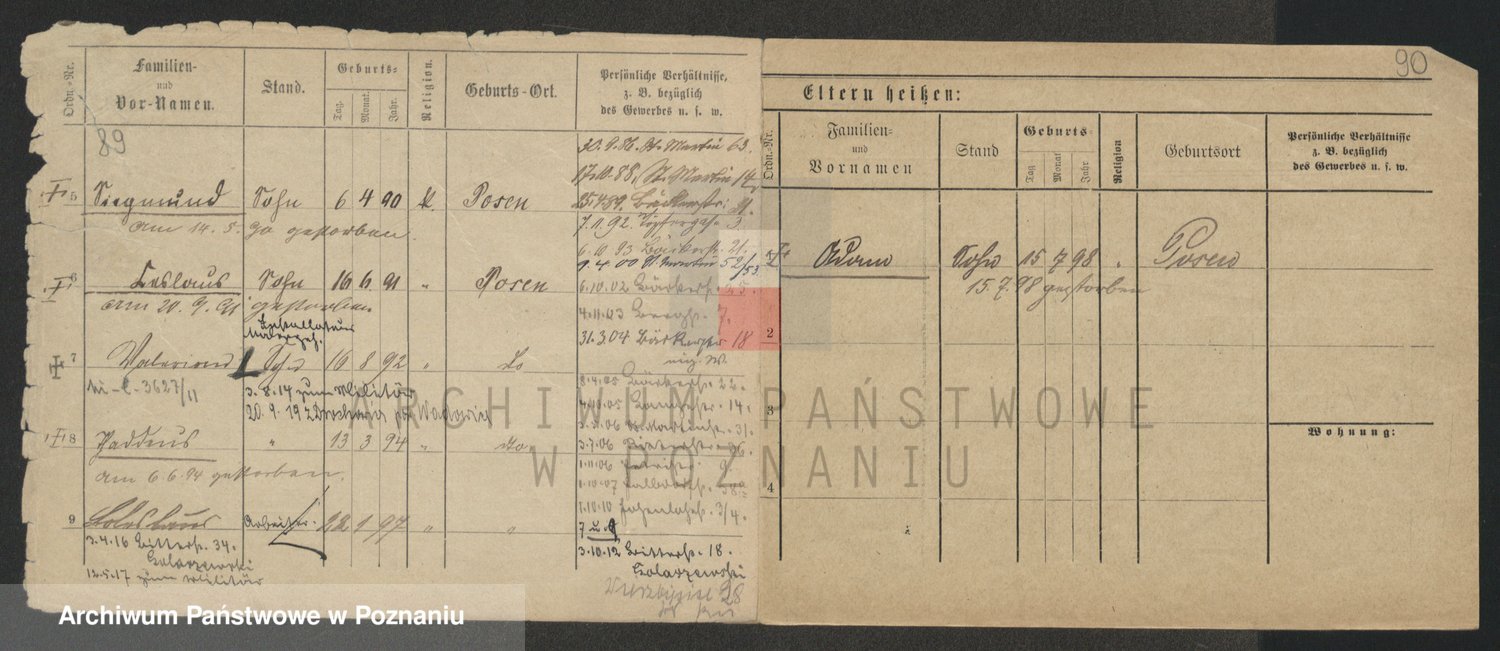 Ordn.-Nr.
Familien-
und
Vor-Namen.
Stand.
Geburts-
Tag. Monat. Jahr.
Religion.
Geburts-Ort.
Persönliche Verhältnisse,
z. B. bezüglich
des Gewerbes u. s. w.
90
Eltern heißen:
Ordn.-Nr.
Familien-
und
Vornamen
Stand
Geburts-
Tag Monat Jahr
Religion
Geburtsort
Persönliche Verhältnisse
z. B. bezüglich
des Gewerbes u. s. w.
89
30.9.86. St. Martin 63.
88. St. Martin 14
5 Siegmund Sohn 6 4 90 k. Posen
Bäckerstr. 21.
am 14. 5. 90 gestorben.
7.11.92. 3.
6.10.93 Bäckerstr. 21.
9.4.00 St. Martin 52/53
6 Ceslaus Sohn 16 6 91 " Posen
6.10.02 Bäckerstr. 25.
am 20. 9. 91 gestorben
4.11.03 Bergstr. 7.
31.3.04 Bäckerstr 18
7 Valerian Sohn 16 8 92 " do
3627/11
3.8.14 zum Militär
20.9.19
8.4.05 Bäckerstr. 22.
4.10.05 14.
06 31.
8 Thaddeus " 13 3 94 " do.
3.7.06 Ritterstr. 36.
am 6.6.94 gestorben.
1.11.06 9.
1.10.07 38a
1.10.10 3/4.
9 Boleslaus Arbeiter. 22 1 97 " "
7 u. 9
3.4.16 Ritterstr. 34.
3.10.12 Ritterstr. 18.
Golarzewski
Golarzewski
12.5.17 zum Militär
28
1 Adam Sohn 15 7 98 " Posen
15.7.98 gestorben
2
3
Wohnung:
4
ARCHIWUM PAŃSTWOWE
W POZNANIU
Archiwum Państwowe w Poznaniu